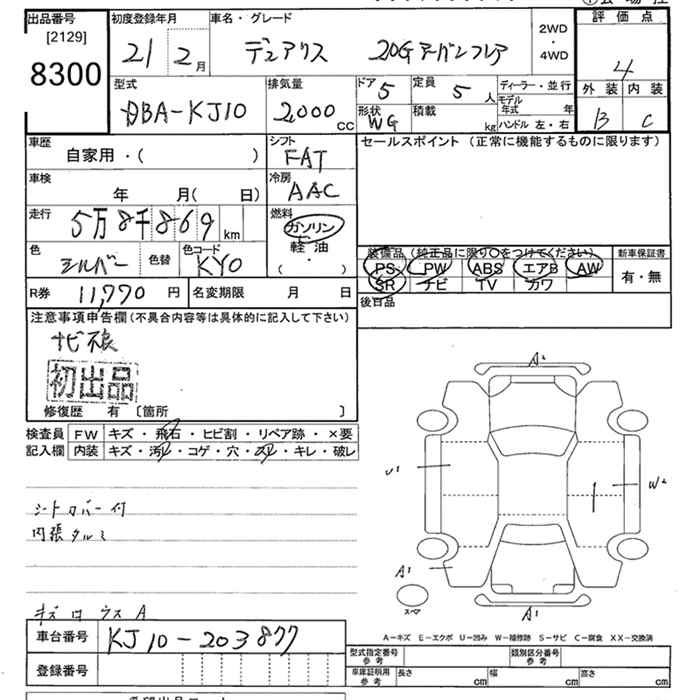 出品番号 初度登録年月 車名・グレード 2WD・4WD 評価点
[2129]
8300 21 2月 デュアリス 20G アーバンフレア 4
型式 排気量 ドア 5 定員 5人 ディーラー・並行 外装 内装
DBA-KJ10 2,000 CC 形状 WG 積載 kg モデル年式 年 B C
ハンドル 左・右
車歴 自家用・( ) シフト FAT セールスポイント (正常に機能するものに限ります)
車検 年 月( 日) 冷房 AAC
走行 5万8千869 km 燃料 ガソリン
軽油
( ・ )
色 シルバー 色替 色コード KY0
装備品 (純正品に限り○をつけてください) 新車保証書
PS PW ABS エアB AW 有・無
SR ナビ TV カワ
R券 11,770 円 名変期限 月 日 後日品
注意事項申告欄 (不具合内容等は具体的に記入して下さい)
ナビ不良
初出品
修復歴 有 〔箇所 〕
検査員 FW キズ・飛石・ヒビ割・リペア跡・×要
記入欄 内装 キズ・汚れ・コゲ・穴・スレ・キレ・破レ
A1
U1
W2
A1
スペア
A1
シートカバー付
内張タルミ
キズ ロウス A
A-キズ E-エクボ U-凹み W-補修跡 S-サビ C-腐食 XX-交換済
車台番号 KJ10-203877
型式指定番号 参考 類別区分番号 参考
登録番号 車庫証明用 参考 長さ cm 幅 cm 高さ cm